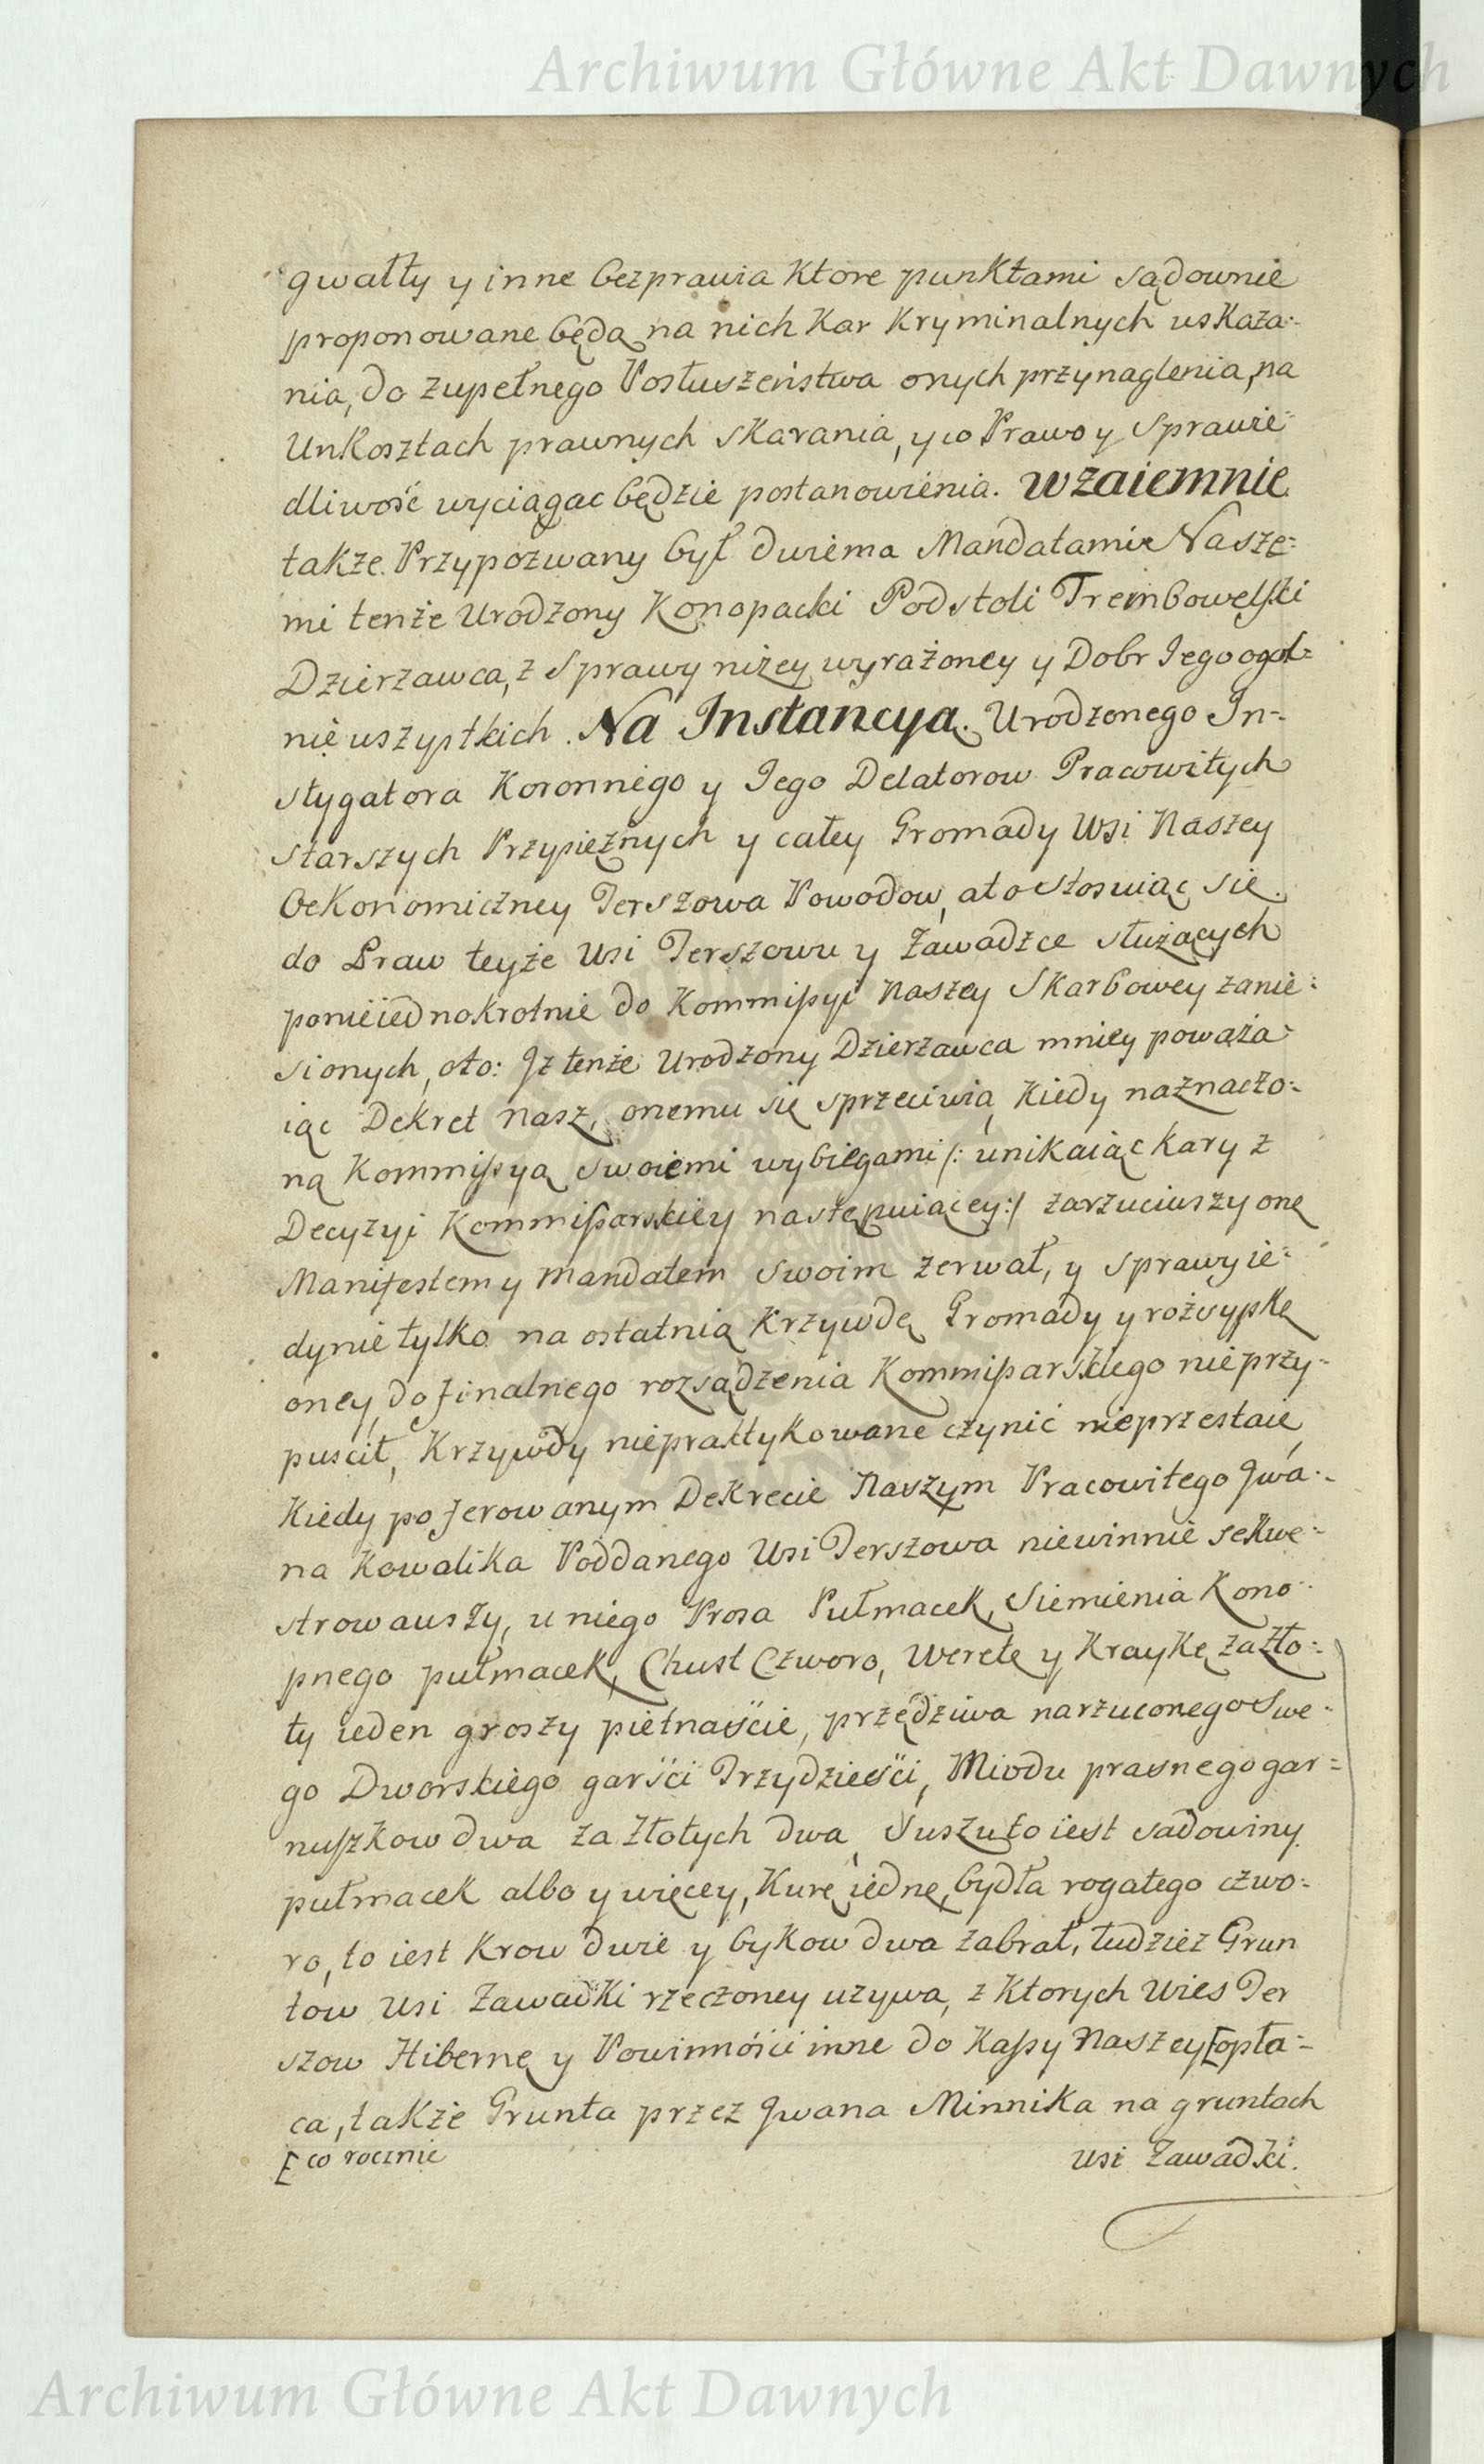 Archiwum Główne Akt Dawnych
gwałty y inne bezprawia Ktore punktami sądownie
proponowane będą na nich Kar Kryminalnych wskaza:-
nia, do zupełnego Posłuszeństwa onych przynaglenia, na
Unkosztach prawnych skarania, y co Prawo y Sprawie-
dliwość wyciągac będzie postanowienia. Wzaiemnie
także Przypozwany był dwiema Mandatamie Nasze:
mi tenże Urodzony Konopacki Podstoli Trembowelski
Dzierzawca, z Sprawy niżey wyrażoney y Dobr Iego ogol:
nie wszystkich. Na Instancyą. Urodzonego In-
stygatora Koronnego y Iego Delatorow Pracowitych
starszych Przysiężnych y całey Gromady Wsi Naszey
Oekonomiczney Terszowa Powodow, a to stosuiąc się
do Praw teyże Wsi Terszowu y Zawadzce służących
ponieiednokrotnie do Kommissyi Naszey Skarbowey zanie:
sionych, oto: Iż tenże Urodzony Dzierzawca mniey poważa-
iąc Dekret Nasz, onemu się sprzeciwia, Kiedy naznaczo-
ną Kommissyą swoiemi wybiegami /: unikaiąc kary z
Decyzyi Kommissarskiey następuiącey :/ zarzuciwszy onę
Manifestem y Mandatem Swoim zerwał, y sprawy ie:
dynie tylko na ostatnią Krzywdę Gromady y rozsypkę
oney, do finalnego rozsądzenia Kommissarskiego nieprzy-
puscił, Krzywdy niepraktykowane czynić nieprzestaie,
Kiedy po ferowanym Dekrecie Naszym Pracowitego Iwa-
na Kowalika Poddanego Wsi Terszowa niewinnie sekwe-
strowawszy, u niego Prosa Pułmacek, Siemienia Kono-
pnego pułmacek, Chust Czworo, Weretę y Kraykę za zło:
ty ieden groszy piętnaście, przędziwa narzuconego Swe-
go Dworskiego garści Trzydzieści, Miodu prasnego gar=
nuszkow dwa za złotych dwa, Suszu to iest sadowiny
pułmacek albo y więcey, Kurę iednę, bydła rogatego czwo-
ro, to iest Krow dwie y bykow dwa zabrał, tudzież Grun
tow Wsi Zawadki rzeczoney uzywa, z Ktorych Wies Ter
szow Hibernę y Powinności inne do Kassy Naszey [opła-
ca, także Grunta przez Iwana Minnika na gruntach
[co rocznie
Wsi Zawadki.
Archiwum Główne Akt Dawnych